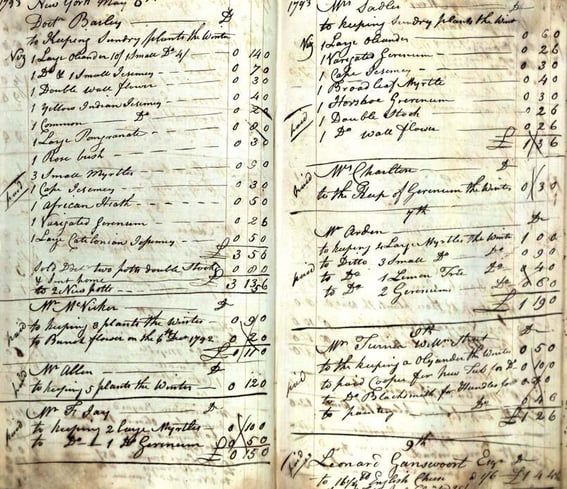 1793 New York May 8th
Doct Barley — Dr
to Keeping Sundry plants the Winter
Viz 1 Large Oleander 10/ 1 Small Do 4/ — 0 14 0
1 Do & 1 Small Jesemey — 0 7 0
1 Double Wall flower — 0 3 0
1 Yellow Indian Jesemey — 0 4 0
1 Common Do
1 Large Pomgranate — 0 8 0
1 Rose bush — 0 3 0
3 Small Myrtles
1 Cape Jesemey — 0 3 0
1 African Heath — 0 5 0
1 Varigated Gerenium — 0 2 6
1 Large Catilonian Jesemey — 0 5 0
£ 3 5 6
Sold Do two potts double Stocks 0 8 0
& Sent home
to 2 New potts
Mr McVicker Dr
paid to keeping 8 plants the Winter — 0 9 0
to Bunch flower on the 6th Decr 1792 0 2 0
£ 0 11 0
Mr Allen — Dr
paid to keeping 5 plants the Winter — 0 12 0
Mr F Jay Dr
paid to keeping 2 Large Myrtles — 0 10 0
to Do 1 Do Gerenium 0 5 0
£ 0 15 0
1793 Mrs Sadler Dr
to keeping Sundry plants the Wint
Viz 1 Large Oleander — 0 6 0
1 Varigated Gerenium — 0 2 6
1 Cape Jesemey — 0 3 0
1 Broad leaf Myrtle — 0 4 0
1 Horshoe Gerenium — 0 3 0
paid 1 Double Stock — 0 2 6
1 Do Wall flower 0 2 6
£ 1 3 6
Mrs Charlton Dr
paid to the Keep of Gerenium the Winter 0 3 0
7th
Mr Arden Dr
to keeping 4 Large Myrtles the Winte 1 0 0
to Ditto 3 Small Do Do 0 9 0
paid to Do 1 Lemon Tree Do 0 4 0
to Do 2 Gerenium Do 0 6 0
£ 1 19 0
8th
Mrs Turner Wm Street Dr
to the keeping a Olyander the Winter 0 5 0
to paid Cooper for new Tub for Do 0 10 0
paid to Do Blacksmith for Handles for Do
to painting Do
£ 1 2 6
9th
Leonard Gansevoort Esqr Dr
English Chees 1/6 £ 1 4